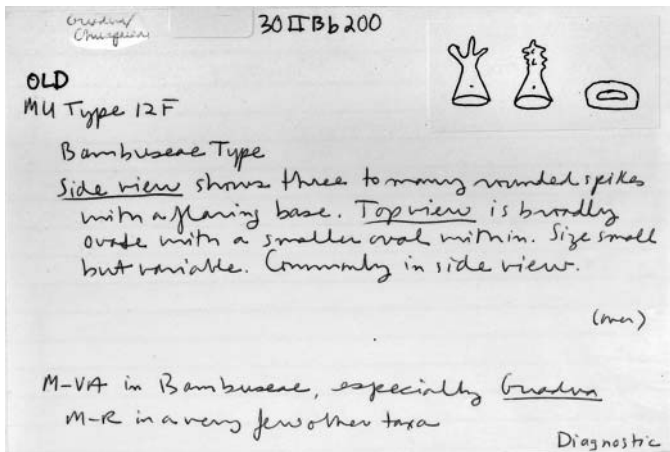 Guadua/
Chusquea
30 II Bb 200
OLD
MU Type 12F
Bambuseae Type
Side view shows three to many rounded spikes
with a flaring base. Top view is broadly
ovate with a smaller oval within. Size small
but variable. Commonly in side view.
(over)
M-VA in Bambuseae, especially Guadua
M-R in a very few other taxa
Diagnostic